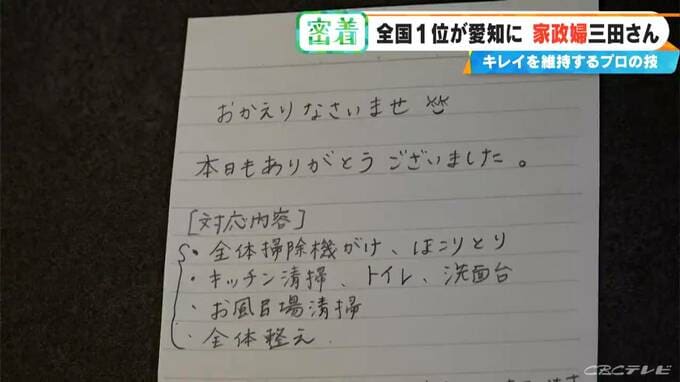 密着
全国1位が愛知に 家政婦三田さん
キレイを維持するプロの技
おかえりなさいませ
本日もありがとうございました。
[対応内容]
・全体掃除機がけ、ほこりとり
・キッチン清掃、トイレ、洗面台
・お風呂場清掃
・全体整え
CBCテレビ